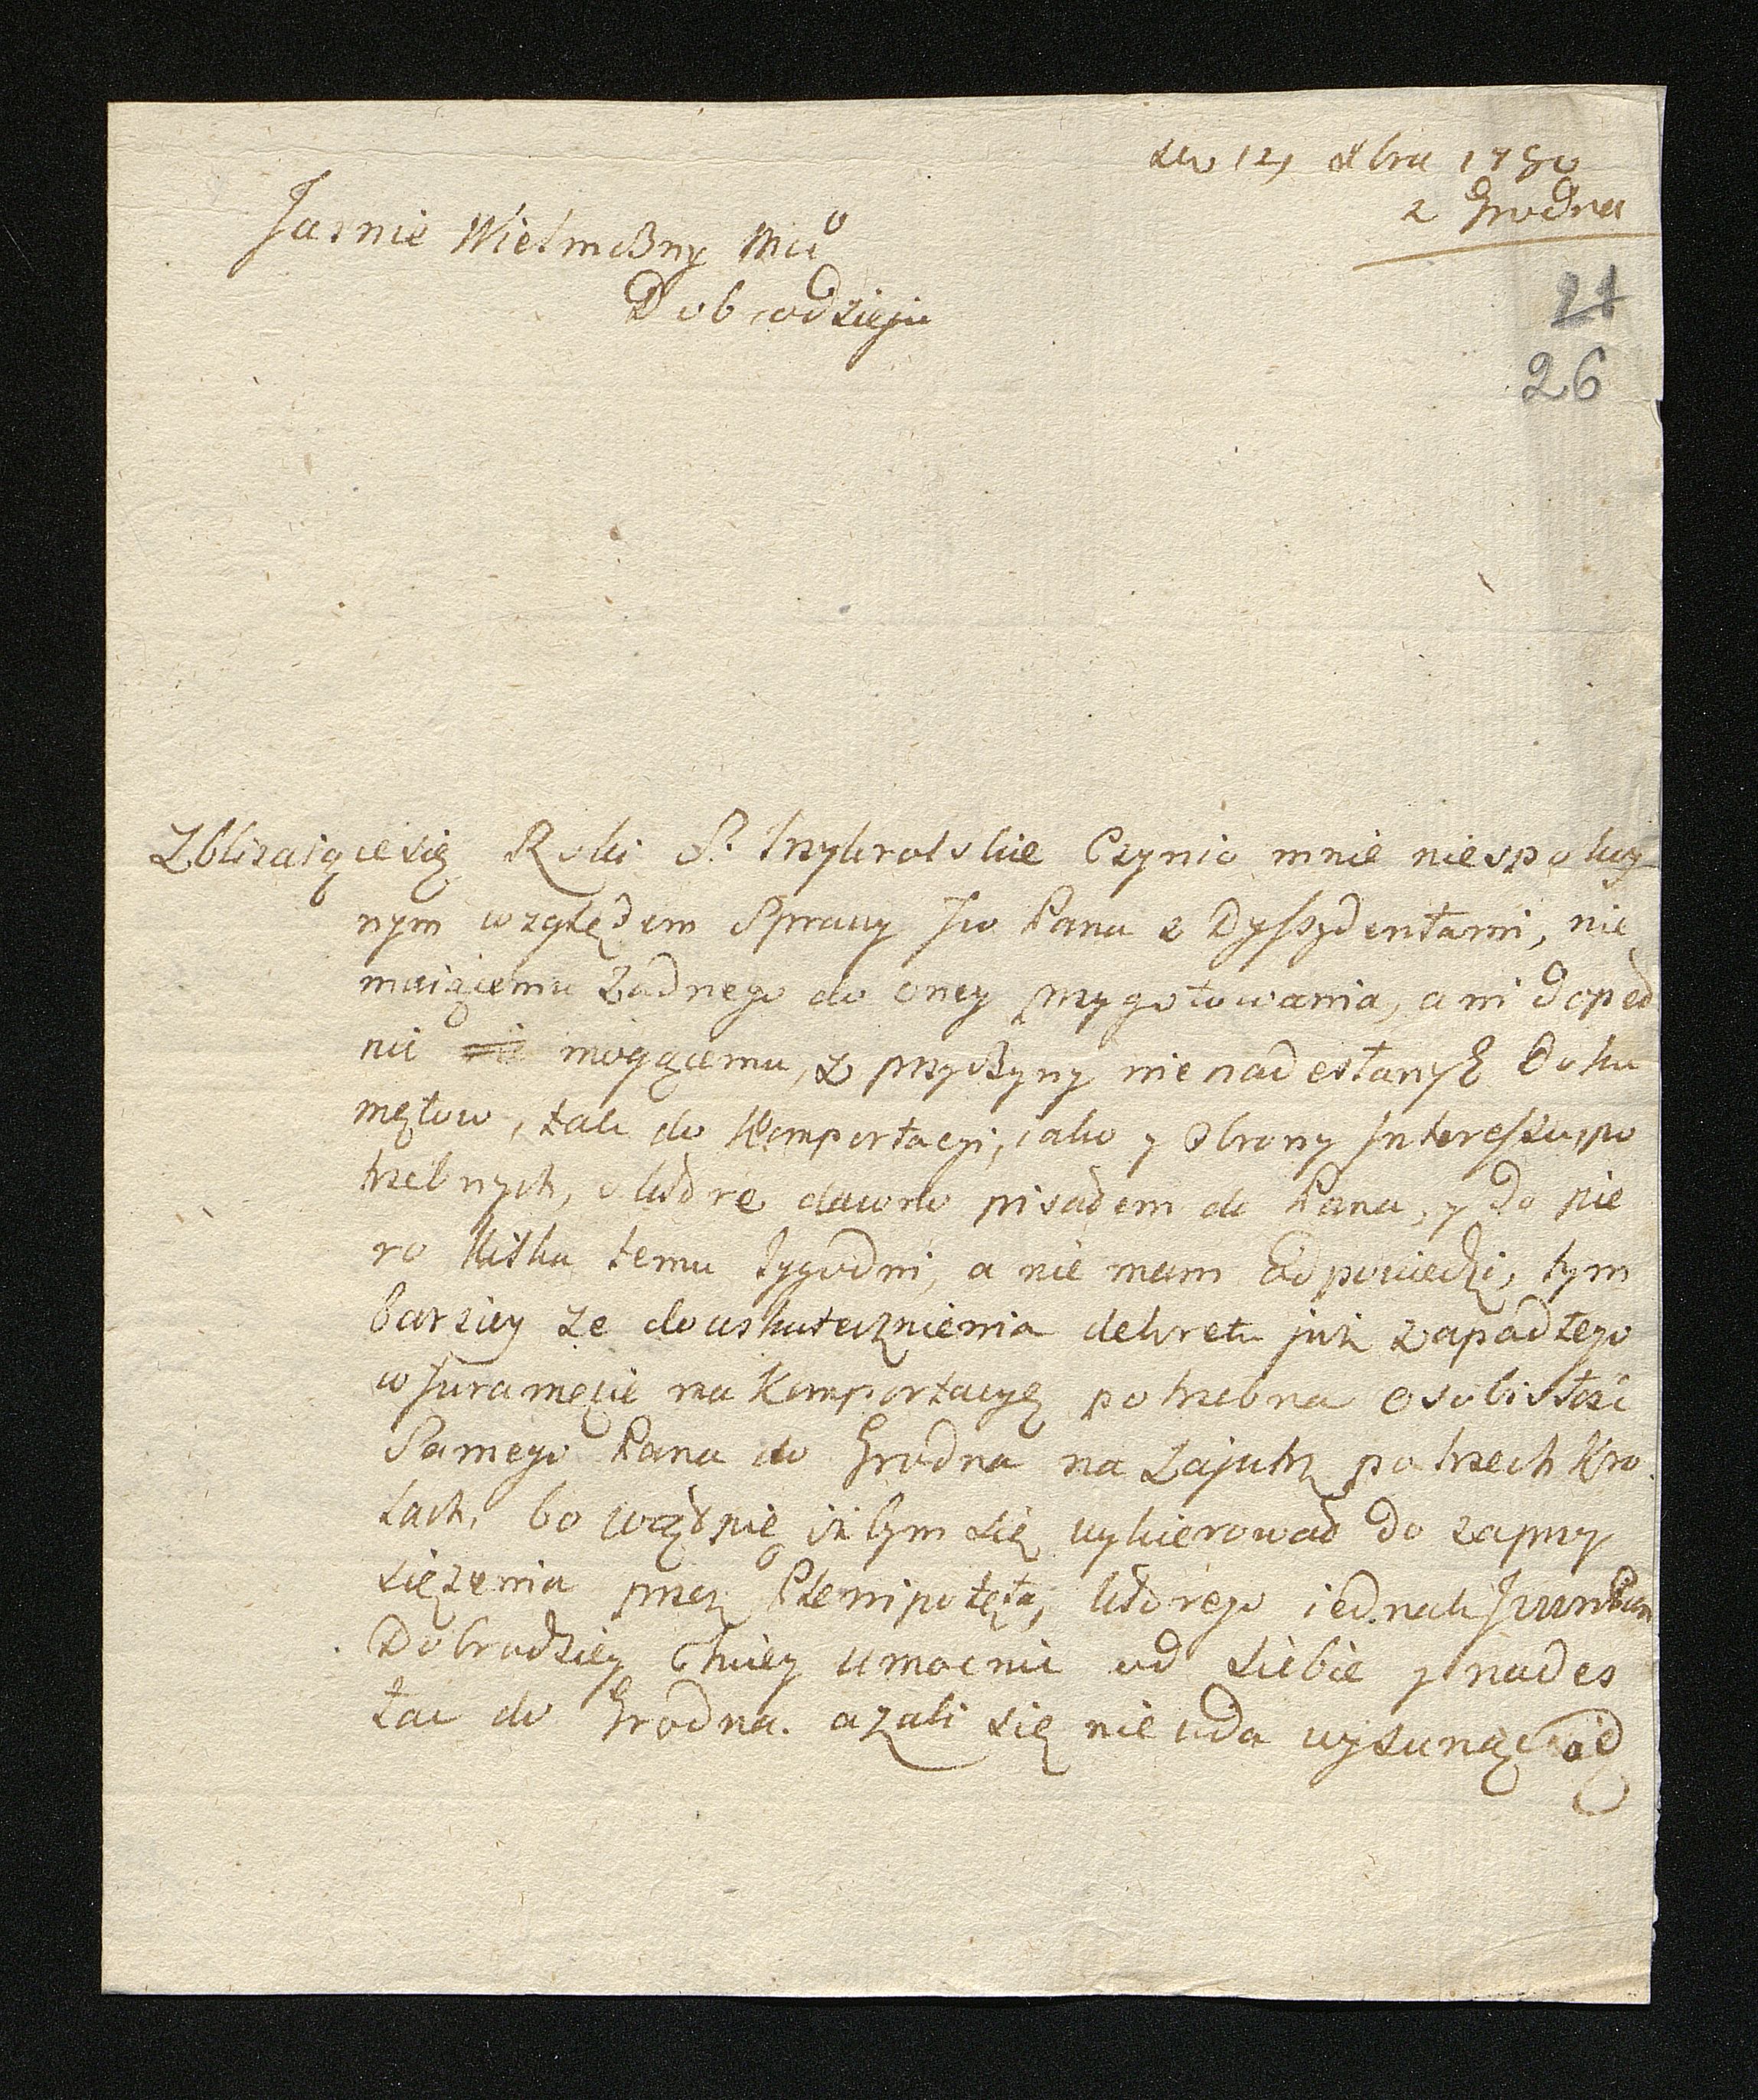 12 Xbra 1780
z Grodna
Jasnie Wielmożny Mci
Dobrodzieju
21
26
Zbliżaiące się Roki S. trzykrolskie Czynio mnie niespokoy
nym względem Sprawy Jw Pana z Dyssydentami, nie
maiącemu żadnego do oney przygotowania, ani dopeł
nić mogącemu, z przyczyny nie nadesłanych doku
mętow, tak do komportacyi, iako y obrony Interessu, po
trzebnych, o które dawno pisałem do Pana, y do pie
ro kilka temu tygodni, a nie mam odpowiedzi, tym
barziey że do uskutecznienia dekretu już zapadłego
w Juramęcie na komportacyę potrzebna osobistość
Samego Pana do Grodna na Zajutrz po trzech Kro
lach, bo wątpię iżbym się wykierował do zaprzy
siężenia przez Plenipotęta, którego iednak
Dobrodziey chciey umocnić od siebie y nades
łać do Grodna. azali się nie uda wysunąć od